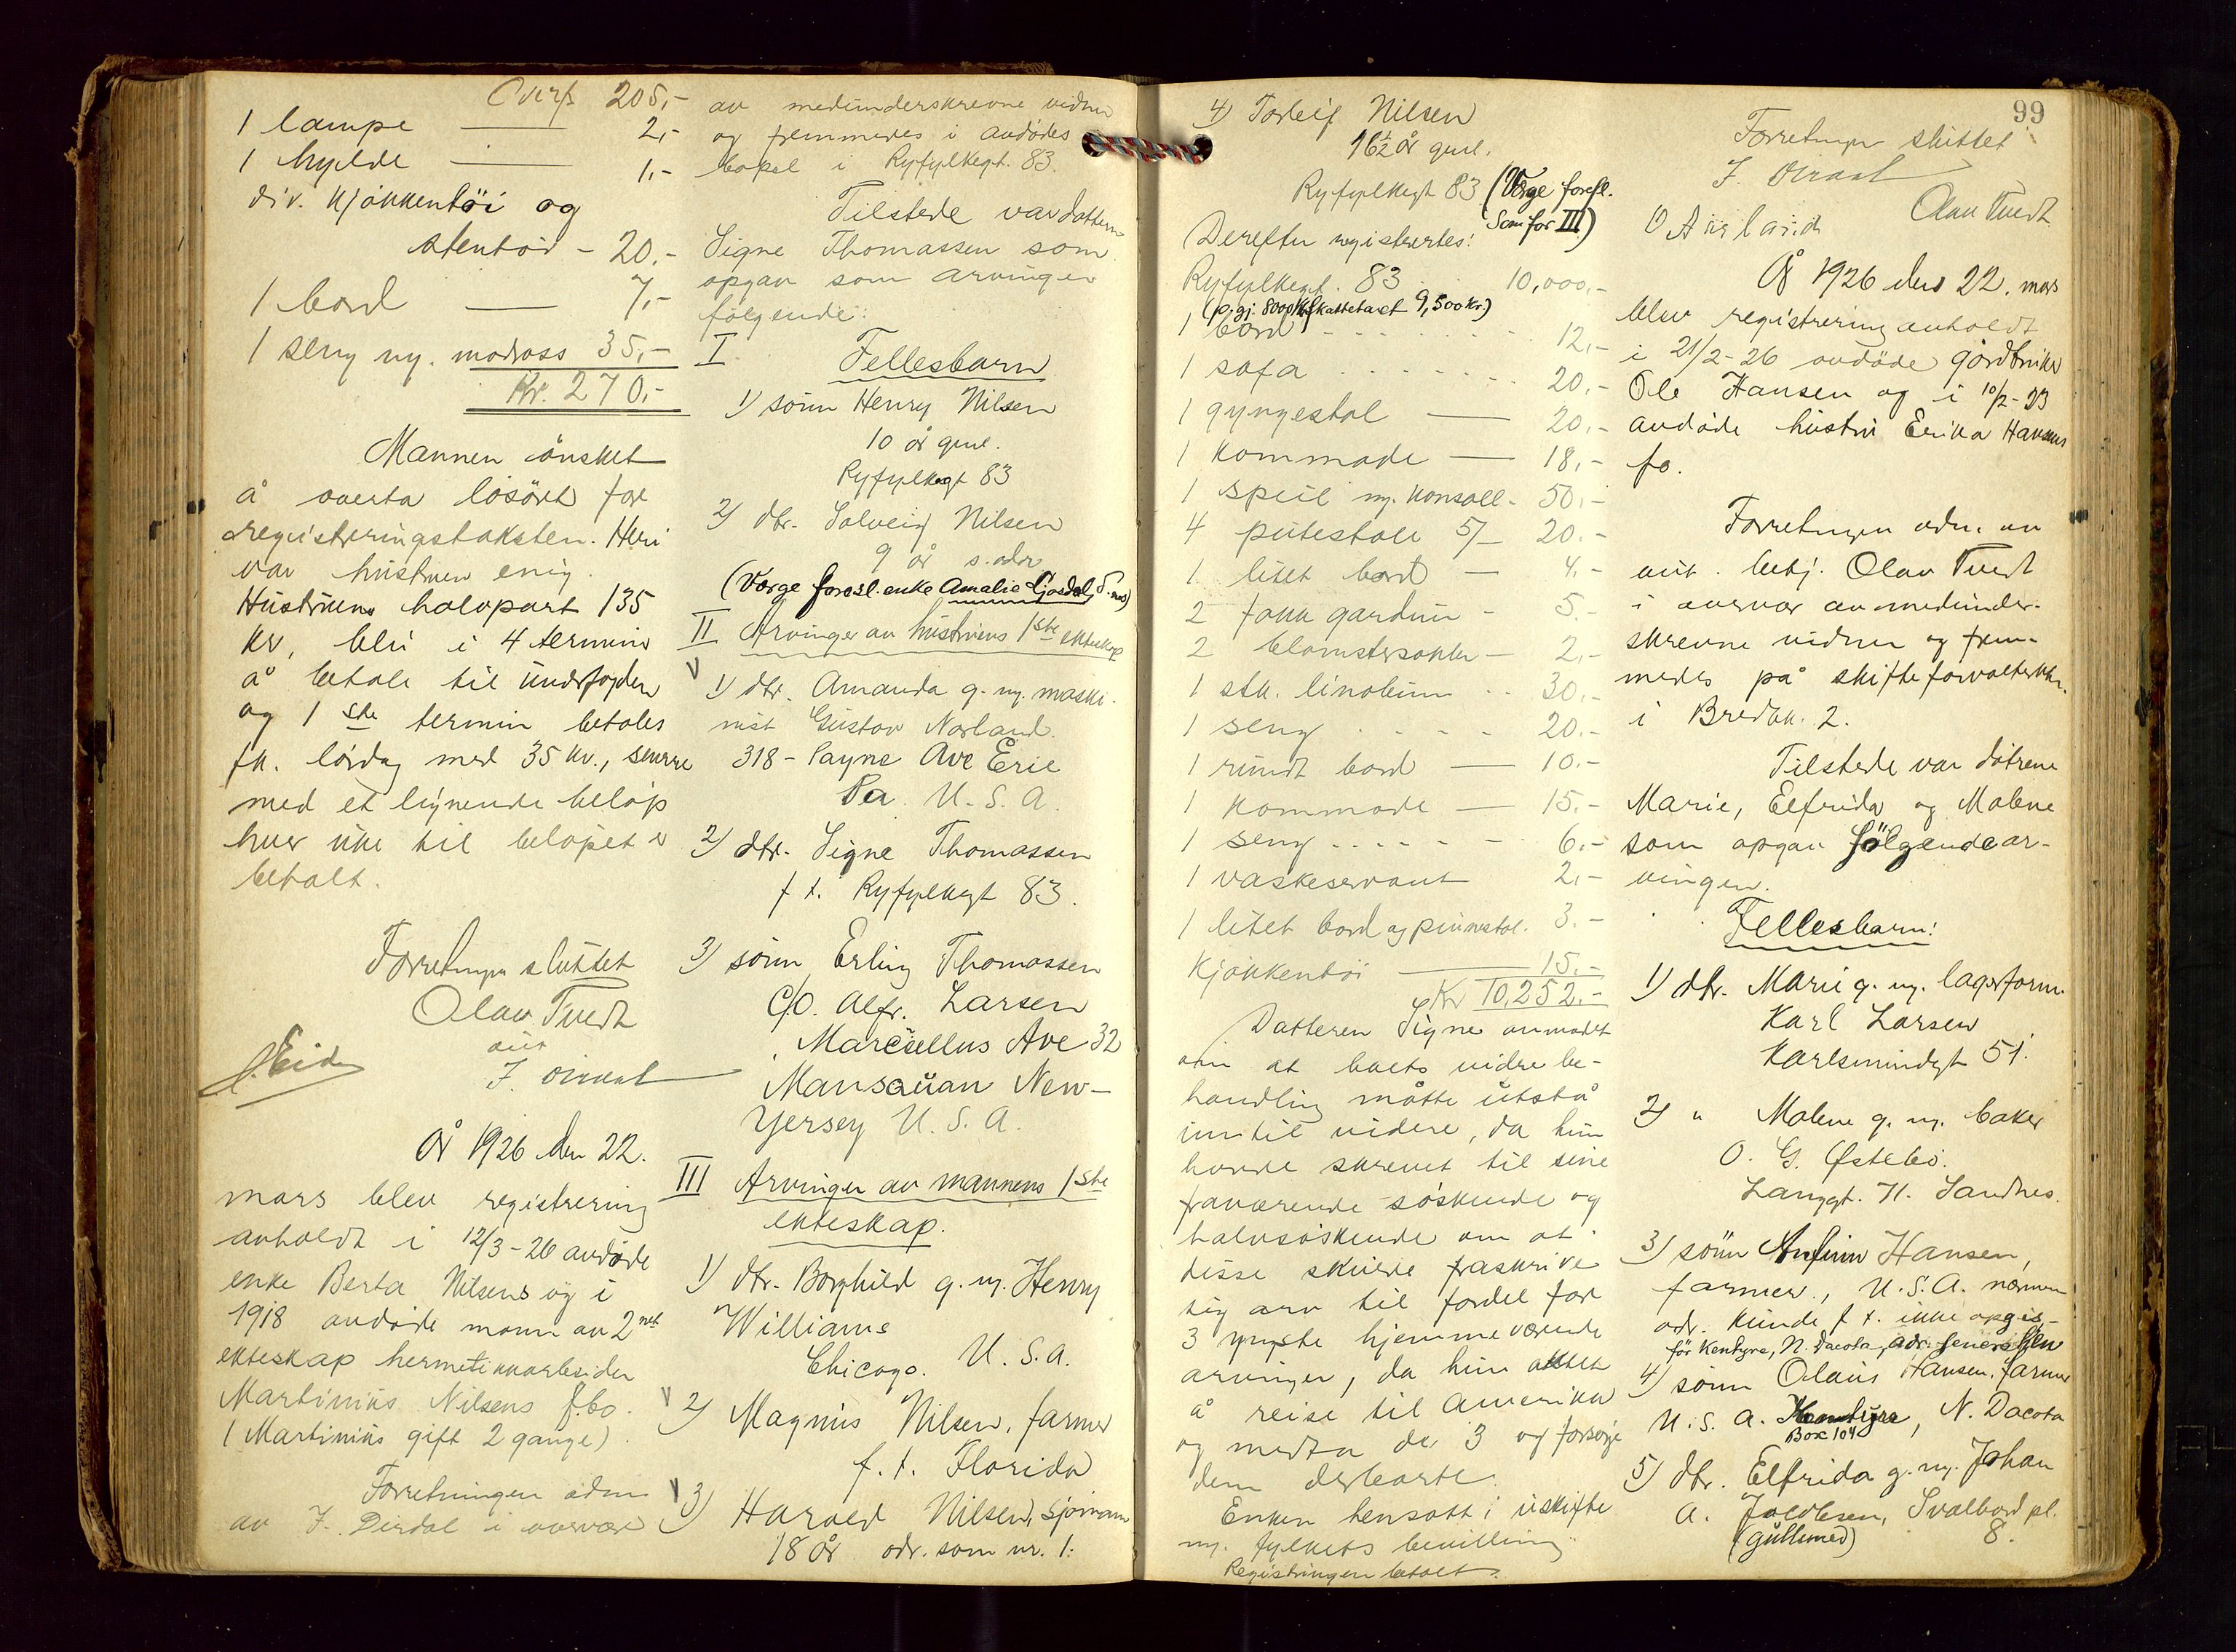 Overf. 205,-
1 lampe — 2,-
1 hylde — 1,-
div. kjøkkentöi og
stentöi - 20,-
1 bord — 7,-
1 seng m. madrass 35,-
Kr. 270,-
Mannen önsket
å overta lösöret for
registreringstaksten. Heri
var hustruen enig.
Hustruens halvpart 135
kr. blir i 4 terminer
å betale til underfogden
og 1ste termin betales
fk. lördag med 35 kr., senere
med et lignende belöp
hver uke til belöpet er
betalt.
Forretningen sluttet
Olav Tvedt
J. Eide
År 1926 den 22.
mars blev registrering
avholdt i 12/3-26 avdöde
enke Berta Nilsens og i
1918 avdöde mann av 2net
ekteskap hermetikkarbeider
Martinius Nilsens f.bo.
(Martinius gift 2 gange)
Forretningen adm.
av J. Dirdal i overvær
av medunderskrevne vidner
og fremmedes i avdödes
bopel i Ryfylkegt. 83.
Tilstede var datteren
Signe Thomassen som
opgav som arvinger
fölgende:
I Fellesbarn
1) sönn Henry Nilsen
10 år gml.
Ryfylkegt 83
2) dtr. Solveig Nilsen
9 år s. adr.
(Værge foresl. enke Amalie Gjosdal, s. )
II Arvinger av hustruens 1ste ekteskap
1) dtr. Amanda g. m. maski-
nist Gustav Norland.
318 - Payne Ave Erie
Pa. U. S. A.
2) dtr. Signe Thomassen
f. t. Ryfylkegt 83.
3) sönn Erling Thomassen
C/O. Alfr. Larsen
Marcellus Ave 32
Mansauan New-
Yersey U. S. A.
III Arvinger av mannens 1ste
ekteskap.
1) dtr. Borghild g. m. Henry
Williams
Chicago. U. S. A.
2) Magnus Nilsen, farmer
f. t. Florida
3) Harald Nilsen, sjömann
18 år adr. som nr. 1.
4) Torleif Nilsen
16½ år gml.
Ryfylkegt 83 (Værge foresl.
som for III)
Derefter registrertes:
Ryfylkegt. 83 . . 10,000,-
(p. gj. 8000 kr skattetakt 9,500 kr.)
1 bord - - - - 12,-
1 sofa . . . . . . 20,-
1 gyngestol — 20,-
1 kommode — 18,-
1 speil m. konsoll - 50,-
4 putestole 5/- 20,-
1 litet bord — 4,-
2 fakk gardiner - 5,-
2 blomstersokler - 2,-
1 stk. linoleum . . 30,-
1 seng . . . . 20,-
1 rundt bord — 10,-
1 kommode — 15,-
1 seng . . . . . 6,-
1 vaskeservant 2,-
1 litet bord og pinnestol. 3,-
Kjökkentöi — 15,-
Kr 10,252,-
Datteren Signe anmodet
om at boets videre be-
handling måtte utstå
inntil videre, da hun
havde skrevet til sine
fraværende söskende og
halvsöskende om at
disse skulde fraskrive
sig arv til fordel for
3 yngste hjemmeværende
arvinger, da hun aktet
å reise til Amerika
og medta de 3 og forsörge
dem derborte.
Enken hensatt i uskifte
m. fylkets bevilling
Registringen betalt.
99
Forretningen sluttet
Olav Tvedt
O Aarland
År 1926 den 22. mars
blev registrering avholdt
i 21/2-26 avdöde gårdbruker
Ole Hansen og i 10/2-23
avdöde hustru Erika Hansens
fo.
Forretningen adm. av
aut. betj. Olav Tvedt
i overvær av medunder-
skrevne vidner og frem-
medes på skifteforvalterktr.
i Bredbk. 2.
Tilstede var dötrene
Marie, Elfrida og Malene
som opgav fölgende ar-
vinger.
Fellesbarn:
1) dtr. Marie g. m. lagerform.
Karl Larsen
Karlsmindegt 51.
2) " Malene g. m. baker
O. G. Østebö.
Langgt. 71. Sandnes.
3) sönn Anfinn Hansen,
farmer, U. S. A. nærmere
adr. kunde f. t. ikke opgis -
för Kentyre, N. Dacota,
4) sönn Olaus Hansen, farmer
U. S. A. Kentyre, N. Dacota
Box 104
5) dtr. Elfrida g. m. Johan
A. Joldersen, Svalbard pl.
(gullsmed) 8.